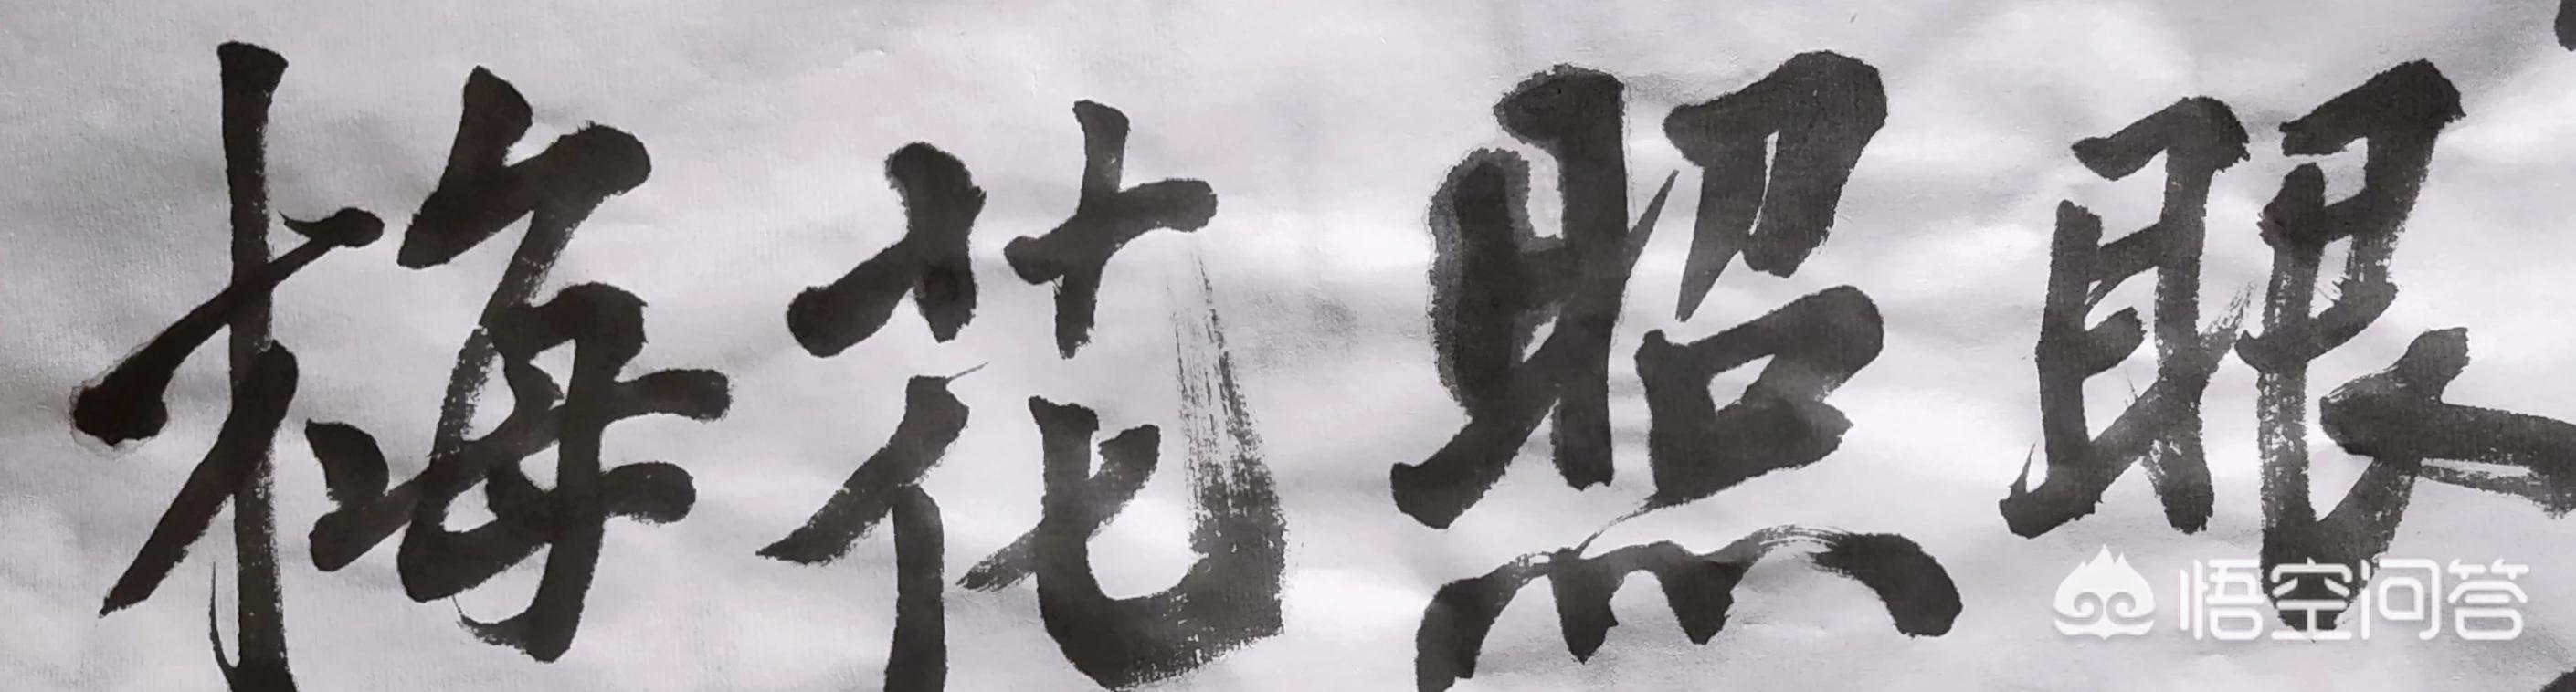 梅花照眼
悟空问答